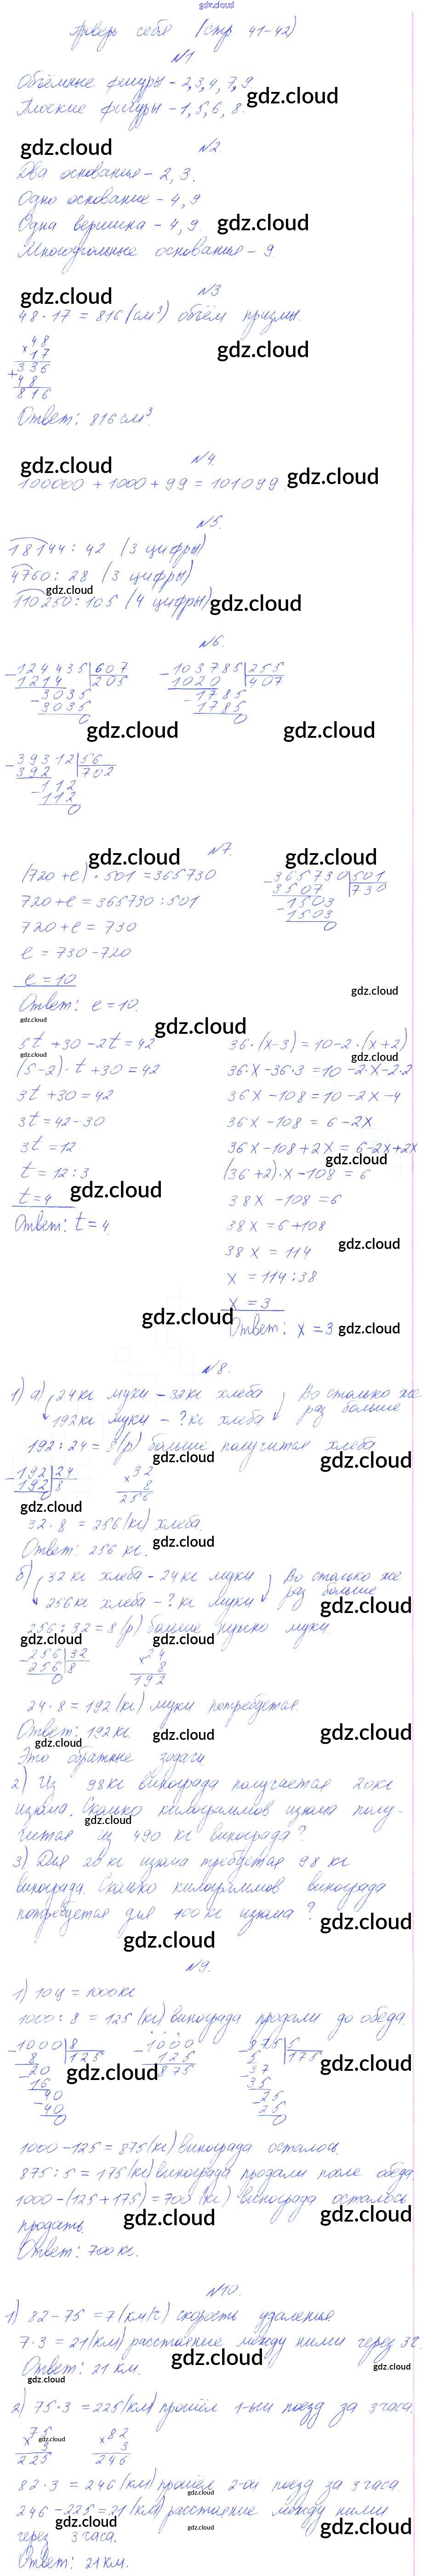 gdz.cloud
Проверь себя (стр 41-42)
№1
Объёмные фигуры - 2,3,4,7,9
Плоские фигуры - 1,5,6,8.
gdz.cloud
gdz.cloud
№2.
Два основания - 2,3.
Одно основание - 4,9
Одна вершина - 4,9.
gdz.cloud
Многоугольные основания - 9
gdz.cloud
№3
48 · 17 = 816 (см³) объём призмы.
× 48
17
gdz.cloud
+ 336
48
816
Ответ: 816 см³.
gdz.cloud
№4.
gdz.cloud
100000 + 1000 + 99 = 101099
№5.
18144 : 42 (3 цифры)
4760 : 28 (3 цифры)
gdz.cloud
110250 : 105 (4 цифры)
gdz.cloud
№6.
- 124435 | 607
1214 | 205
- 3035
3035
0
- 103785 | 255
1020 | 407
- 1785
1785
0
gdz.cloud
gdz.cloud
- 39312 | 56
392 | 702
- 112
112
0
gdz.cloud
№7.
gdz.cloud
(720 + e) · 501 = 365730
720 + e = 365730 : 501
720 + e = 730
e = 730 - 720
e = 10
Ответ: e = 10.
- 365730 | 501
3507 | 730
- 1503
1503
0
gdz.cloud
gdz.cloud
gdz.cloud
5t + 30 - 2t = 42
gdz.cloud
(5-2) · t + 30 = 42
3t + 30 = 42
3t = 42 - 30
3t = 12
t = 12 : 3
t = 4
gdz.cloud
Ответ: t = 4.
36 · (x-3) = 10 - 2 · (x+2)
gdz.cloud
36·x - 36·3 = 10 - 2·x - 2·2
36x - 108 = 10 - 2x - 4
36x - 108 = 6 - 2x
36x - 108 + 2x = 6 - 2x + 2x
gdz.cloud
(36 + 2) · x - 108 = 6
38x - 108 = 6
38x = 6 + 108
gdz.cloud
38x = 114
x = 114 : 38
x = 3
gdz.cloud
Ответ: x = 3
gdz.cloud
№8.
1) а) 24 кг муки - 32 кг хлеба Во столько же
192 кг муки - ? кг хлеба раз больше
192 : 24 = 8 (р) больше получится хлеба
gdz.cloud
gdz.cloud
- 192 | 24
192 | 8
0
× 32
8
256
gdz.cloud
32 · 8 = 256 (кг) хлеба.
gdz.cloud
Ответ: 256 кг.
б) 32 кг хлеба - 24 кг муки Во столько же
256 кг хлеба - ? кг муки раз больше
gdz.cloud
256 : 32 = 8 (р) больше нужно муки
gdz.cloud
gdz.cloud
- 256 | 32
256 | 8
0
× 24
8
192
24 · 8 = 192 (кг) муки потребуется.
Ответ: 192 кг.
gdz.cloud
gdz.cloud
gdz.cloud
Это обратные задачи
2) Из 98 кг винограда получается 20 кг
изюма. Сколько килограммов изюма полу-
gdz.cloud
чится из 490 кг винограда?
3) Для 20 кг изюма требуется 98 кг
винограда. Сколько килограммов винограда
потребуется для 100 кг изюма?
gdz.cloud
gdz.cloud
№9.
1) 10 ц = 1000 кг
1000 : 8 = 125 (кг) винограда продали до обеда.
- 1000 | 8
8 | 125
- 20
16
- 40
40
0
- 1000
125
875
- 875 | 5
5 | 175
- 37
35
- 25
25
0
gdz.cloud
gdz.cloud
1000 - 125 = 875 (кг) винограда осталось.
875 : 5 = 175 (кг) винограда продали после обеда.
1000 - (125 + 175) = 700 (кг) винограда осталось
продать.
gdz.cloud
gdz.cloud
Ответ: 700 кг.
№10.
1) 82 - 75 = 7 (км/ч) скорость удаления
7 · 3 = 21 (км) расстояние между ними через 3ч.
gdz.cloud
Ответ: 21 км.
gdz.cloud
gdz.cloud
2) 75 · 3 = 225 (км) прошёл 1-ый поезд за 3 часа.
× 75
3
225
gdz.cloud
× 82
3
246
82 · 3 = 246 (км) прошёл 2-ой поезд за 3 часа.
gdz.cloud
246 - 225 = 21 (км) расстояние между ними
gdz.cloud
gdz.cloud
gdz.cloud
через 3 часа.
Ответ: 21 км.